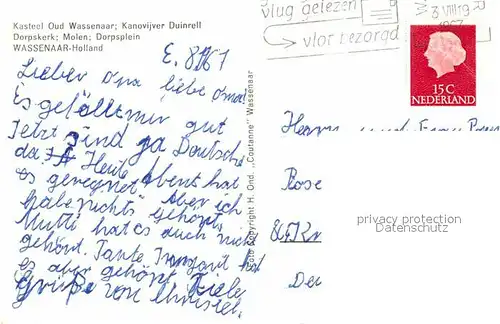 Kasteel Oud Wassenaar; Kanovijver Duinrell
Dorpskerk; Molen; Dorpsplein
WASSENAAR-Holland
vlug gelezen
vlot bezorgd
3 VIII 19
1967
15 C
NEDERLAND
Lieber opa liebe oma
Es gefällt mir gut
Jetzt sind ja Deutsche
da Heute Abent hat
es geregnet Aber ich
habe nichts gehört.
Mutti hat es auch nicht
gehört. Tante Irmgard hat
es aber gehört. Viele
Grüße von Christel
Foto Copyright H. Ond. „Coutanne" Wassenaar
Herrn
Rose
privacy protection
Datenschutz